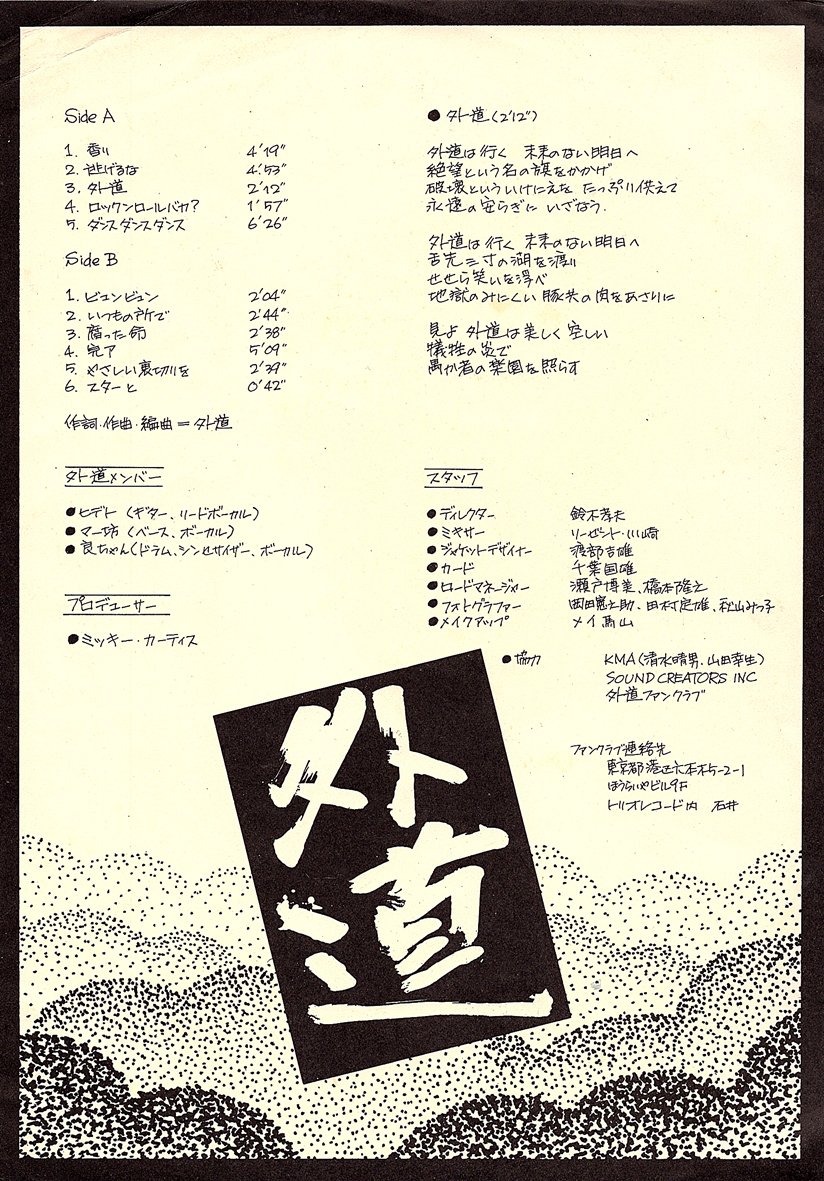 Side A
1. 香り 4'19"
2. 逃げるな 4'53"
3. 外道 2'12"
4. ロックンロールバカ? 1'57"
5. ダンスダンスダンス 6'26"
Side B
1. ビュンビュン 2'04"
2. いつもの所で 2'44"
3. 腐った命 2'38"
4. 完了 5'09"
5. やさしい裏切りを 2'39"
6. スターと 0'42"
作詞・作曲・編曲=外道
●外道(2'12")
外道は行く 未来のない明日へ
絶望という名の旗をかかげ
破壊といういけにえを たっぷり供えて
永遠の安らぎに いざなう.
外道は行く 未来のない明日へ
舌先三寸の湖を渡り
せせら笑いを浮べ
地獄のみにくい豚共の肉をあさりに
見よ 外道は美しく 空しい
犠牲の炎で
愚か者の楽園を照らす
外道メンバー
●ヒデト (ギター、リードボーカル)
●マー坊 (ベース、ボーカル)
●良ちゃん(ドラム、シンセサイザー、ボーカル)
プロデューサー
●ミッキー・カーティス
スタッフ
●ディレクター 鈴木孝夫
●ミキサー リーゼント・川崎
●ジャケットデザイナー 渡部吉雄
●カード 千葉国雄
●ロードマネージャー 瀬戸博美、橋本隆之
●フォトグラファー 西田憲之助、田村定雄、秋山みつ子
●メイクアップ メイ馬山
●協力 KMA(清水晴男、山田幸生)
SOUND CREATORS INC
外道ファンクラブ
ファンクラブ連絡先
東京都港区六本木5-2-1
ほうらいやビル9F
トリオレコード内 石井
外道